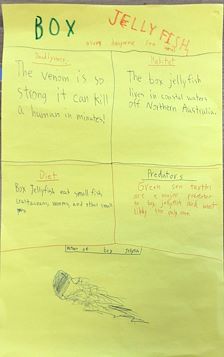 BOX JELLYFISH
Deadlyness
The venom is so
strong it can kill
a human in minutes!
Habitat
The box jellyfish
lives in coastal waters
off Northern Australia.
Diet
Box Jellyfish eat small fish,
crustaceans, worms, and other small
Predators
Green sea turtles
are a major predator
to box jellyfish and most
likely the only one
Picture of box jellyfish